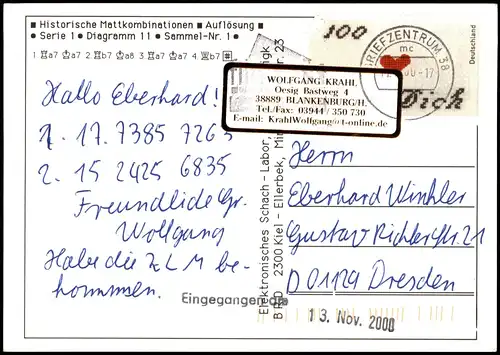 ■ Historische Mattkombinationen ■ Auflösung ■
■ Serie 1 ■ Diagramm 11 ■ Sammel-Nr. 1 ■
1 ♖a7 ♔a7 2 ♖b7 ♔a8 3 ♖a7 ♔a7 4 ♖b7#
Hallo Eberhard!
1. 17. 7385 7263
2. 15 2425 6835
Freundliche Gr.
Wolfgang
Habe die ZLM be-
kommen.
Eingegangen
13. Nov. 2000
WOLFGANG KRAHL
Oesig Bastweg 4
38889 BLANKENBURG/H.
Tel./Fax: 03944 / 350 730
E-mail: KrahlWolfgang@t-online.de
Elektronisches Schach-Labor,
BRD 2300 Kiel - Ellerbek,
nr. 23
100
Deutschland
BRIEFZENTRUM 38
mc
Dich
Herrn
Eberhard Winkler
Gustav Richterstr. 21
D 01129 Dresden